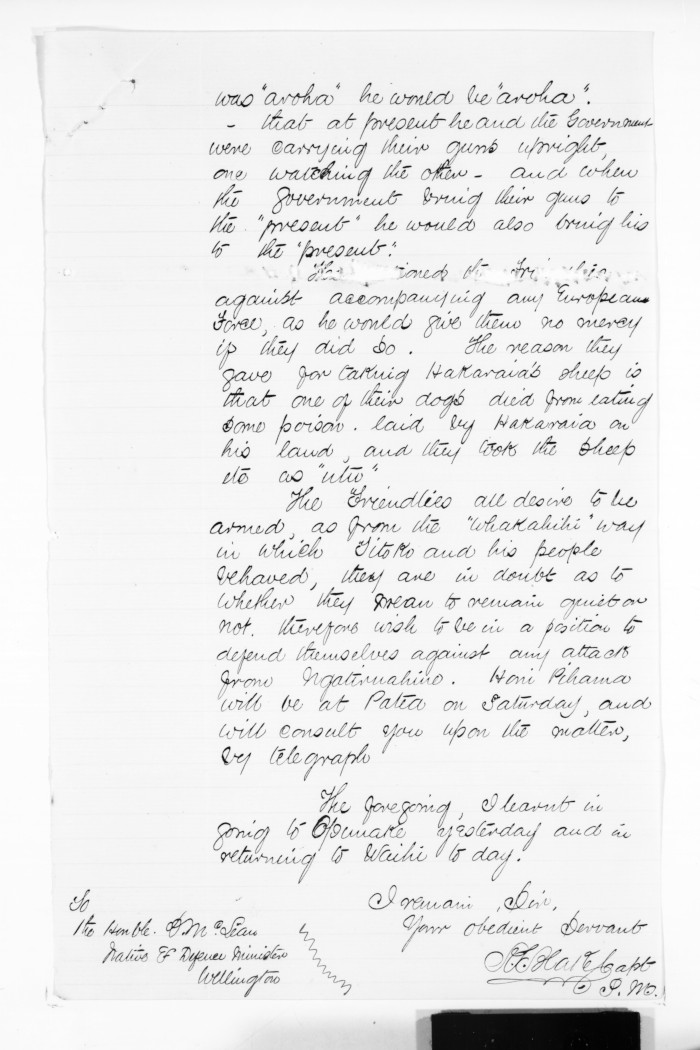 was "aroha" he would be "aroha".
- that at present he and the Government
were carrying their guns upright,
one watching the other - and when
the Government bring their guns to
the "present" he would also bring his
to the "present".
the
against accompanying any European
Force, as he would give them no mercy
if they did so. The reason they
gave for taking Hakaraia's sheep is
that one of their dogs died from eating
some poison. laid by Hakaraia on
his land, and they took the sheep
etc as "utu"
The Friendlies all desire to be
armed, as from the "whakahihi" way
in which Titoko and his people
behaved, they are in doubt as to
whether they mean to remain quiet or
not. therefore wish to be in a position to
defend themselves against any attack
from Ngatiruahine. Honi Pihama
will be at Patea on Saturday, and
will consult you upon the matter,
by telegraph
The foregoing, I learnt in
going to Opunake yesterday and in
returning to Waihi to day.
I remain, Sir,
Your obedient Servant
Capt
P.M.
To
The Honble. D. McLean
Native & Defence Minister
Wellington